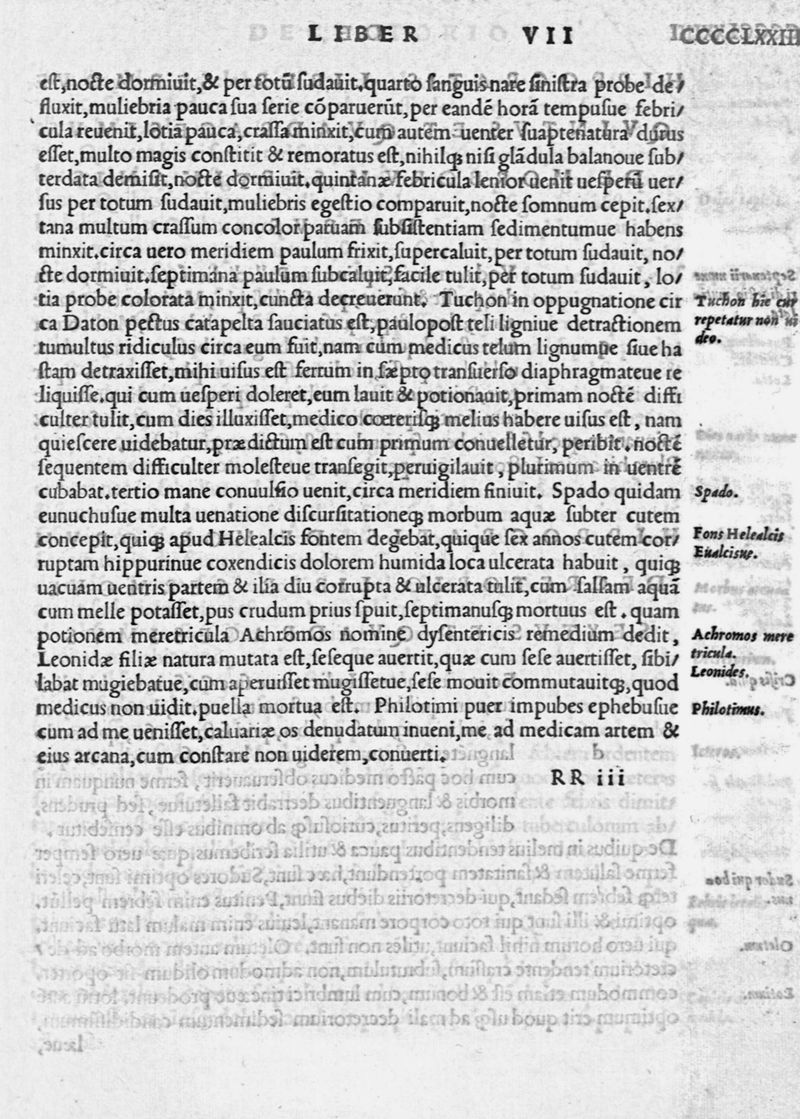 LIBER VII CCCCLXXIII
est,nocte dormiuit,& per totũ sudauit.quarto sanguis nare sinistra probe de/
fluxit,muliebria pauca sua serie cõparuerũt,per eandẽ horã tempusue febri/
cula reuenit,lotia pauca,crassa minxit,cum autem uenter suapte natura durus
esset,multo magis constitit & remoratus est,nihilqʒ nisi glãdula balanoue sub/
terdata demisit,nocte dormiuit.quintanæ febricula lenior uenit uesperũ uer/
sus per totum sudauit,muliebris egestio comparuit,nocte somnum cepit.sex/
tana multum crassum concolor paruam subsistentiam sedimentumue habens
minxit.circa uero meridiem paulum frixit,supercaluit,per totum sudauit, no/
cte dormiuit.septimana paulum subcaluit,facile tulit,per totum sudauit, lo/
tia probe colorata minxit,cuncta decreuerunt. Tuchon in oppugnatione cir
Tuchon hic cur
ca Daton pectus catapelta sauciatus est,paulopost teli ligniue detractionem
repetatur non ui
tumultus ridiculus circa eum fuit,nam cum medicus telum lignumpe siue ha
deo.
stam detraxisset,mihi uisus est ferrum in sæpto transuerso diaphragmateue re
liquisse.qui cum uesperi doleret,eum lauit & potionauit,primam noctẽ diffi
culter tulit,cum dies illuxisset,medico cœterisqʒ melius habere uisus est, nam
quiescere uidebatur,prædictum est cum primum conuelletur, peribit.noctẽ
sequentem difficulter molesteue transegit,peruigilauit, plurimum in uentrẽ
cubabat.tertio mane conuulsio uenit,circa meridiem finiuit. Spado quidam
Spado.
eunuchusue multa uenatione discursitationeqʒ morbum aquæ subter cutem
concepit,quiqʒ apud Helealcis fontem degebat,quique sex annos cutem cor/
Fons Helealcis
Eualcisue.
ruptam hippurinue coxendicis dolorem humida loca ulcerata habuit, quiqʒ
uacuam uentris partem & ilia diu corrupta & ulcerata tulit,cum salsam aquã
cum melle potasset,pus crudum prius spuit,septimanusqʒ mortuus est. quam
potionem meretricula Achromos nomine dysentericis remedium dedit,
Achromos mere
tricula.
Leonidæ filiæ natura mutata est,seseque auertit,quæ cum sese auertisset, sibi/
Leonides.
labat mugiebatue,cum aperuisset mugissetue,sese mouit commutauitqʒ,quod
medicus non uidit,puella mortua est. Philotimi puer impubes ephebusue
Philotimus.
cum ad me uenisset,caluariæ os denudatum inueni,me ad medicam artem &
eius arcana,cum constare non uiderem,conuerti.
RR iii